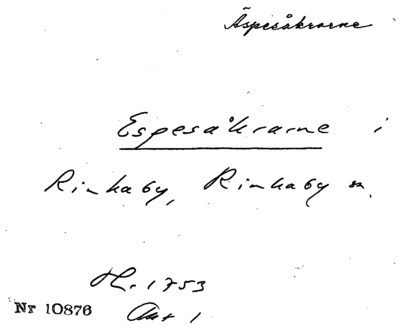 Äspesåkrarne
Espesåkrarne i
Rinkaby, Rinkaby sn.
H. 1753
Akt 1
Nr 10876